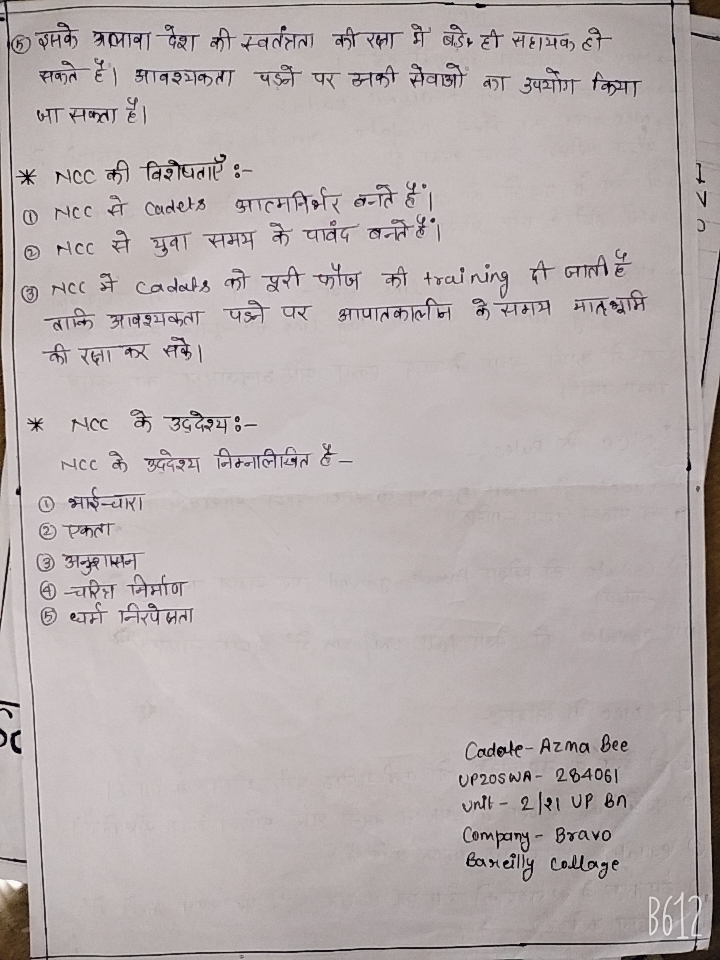 ⑤ इसके अलावा देश की स्वतंत्रता की रक्षा में बड़े ही सहायक हो
सकते हैं। आवश्यकता पड़ने पर उनकी सेवाओं का उपयोग किया
जा सकता है।
* NCC की विशेषताएँ :-
① NCC से Cadets आत्मनिर्भर बनते हैं।
② NCC से युवा समय के पाबंद बनते हैं।
③ NCC में Cadets को पूरी फौज की training दी जाती है
ताकि आवश्यकता पड़ने पर आपातकालीन के समय मातृभूमि
की रक्षा कर सकें।
* NCC के उद्देश्य :-
NCC के उद्देश्य निम्नलिखित है -
① भाई-चारा
② एकता
③ अनुशासन
④ चरित्र निर्माण
⑤ धर्म निरपेक्षता
Cadate - Azma Bee
UP20SWA - 284061
Unit - 2/21 UP Bn
Company - Bravo
Bareilly Collage
B612